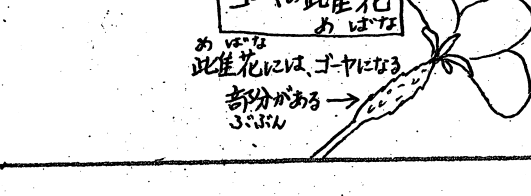 ゴーヤの雌花
めばな
めばな
雌花には、ゴーヤになる
部分がある→
ぶぶん